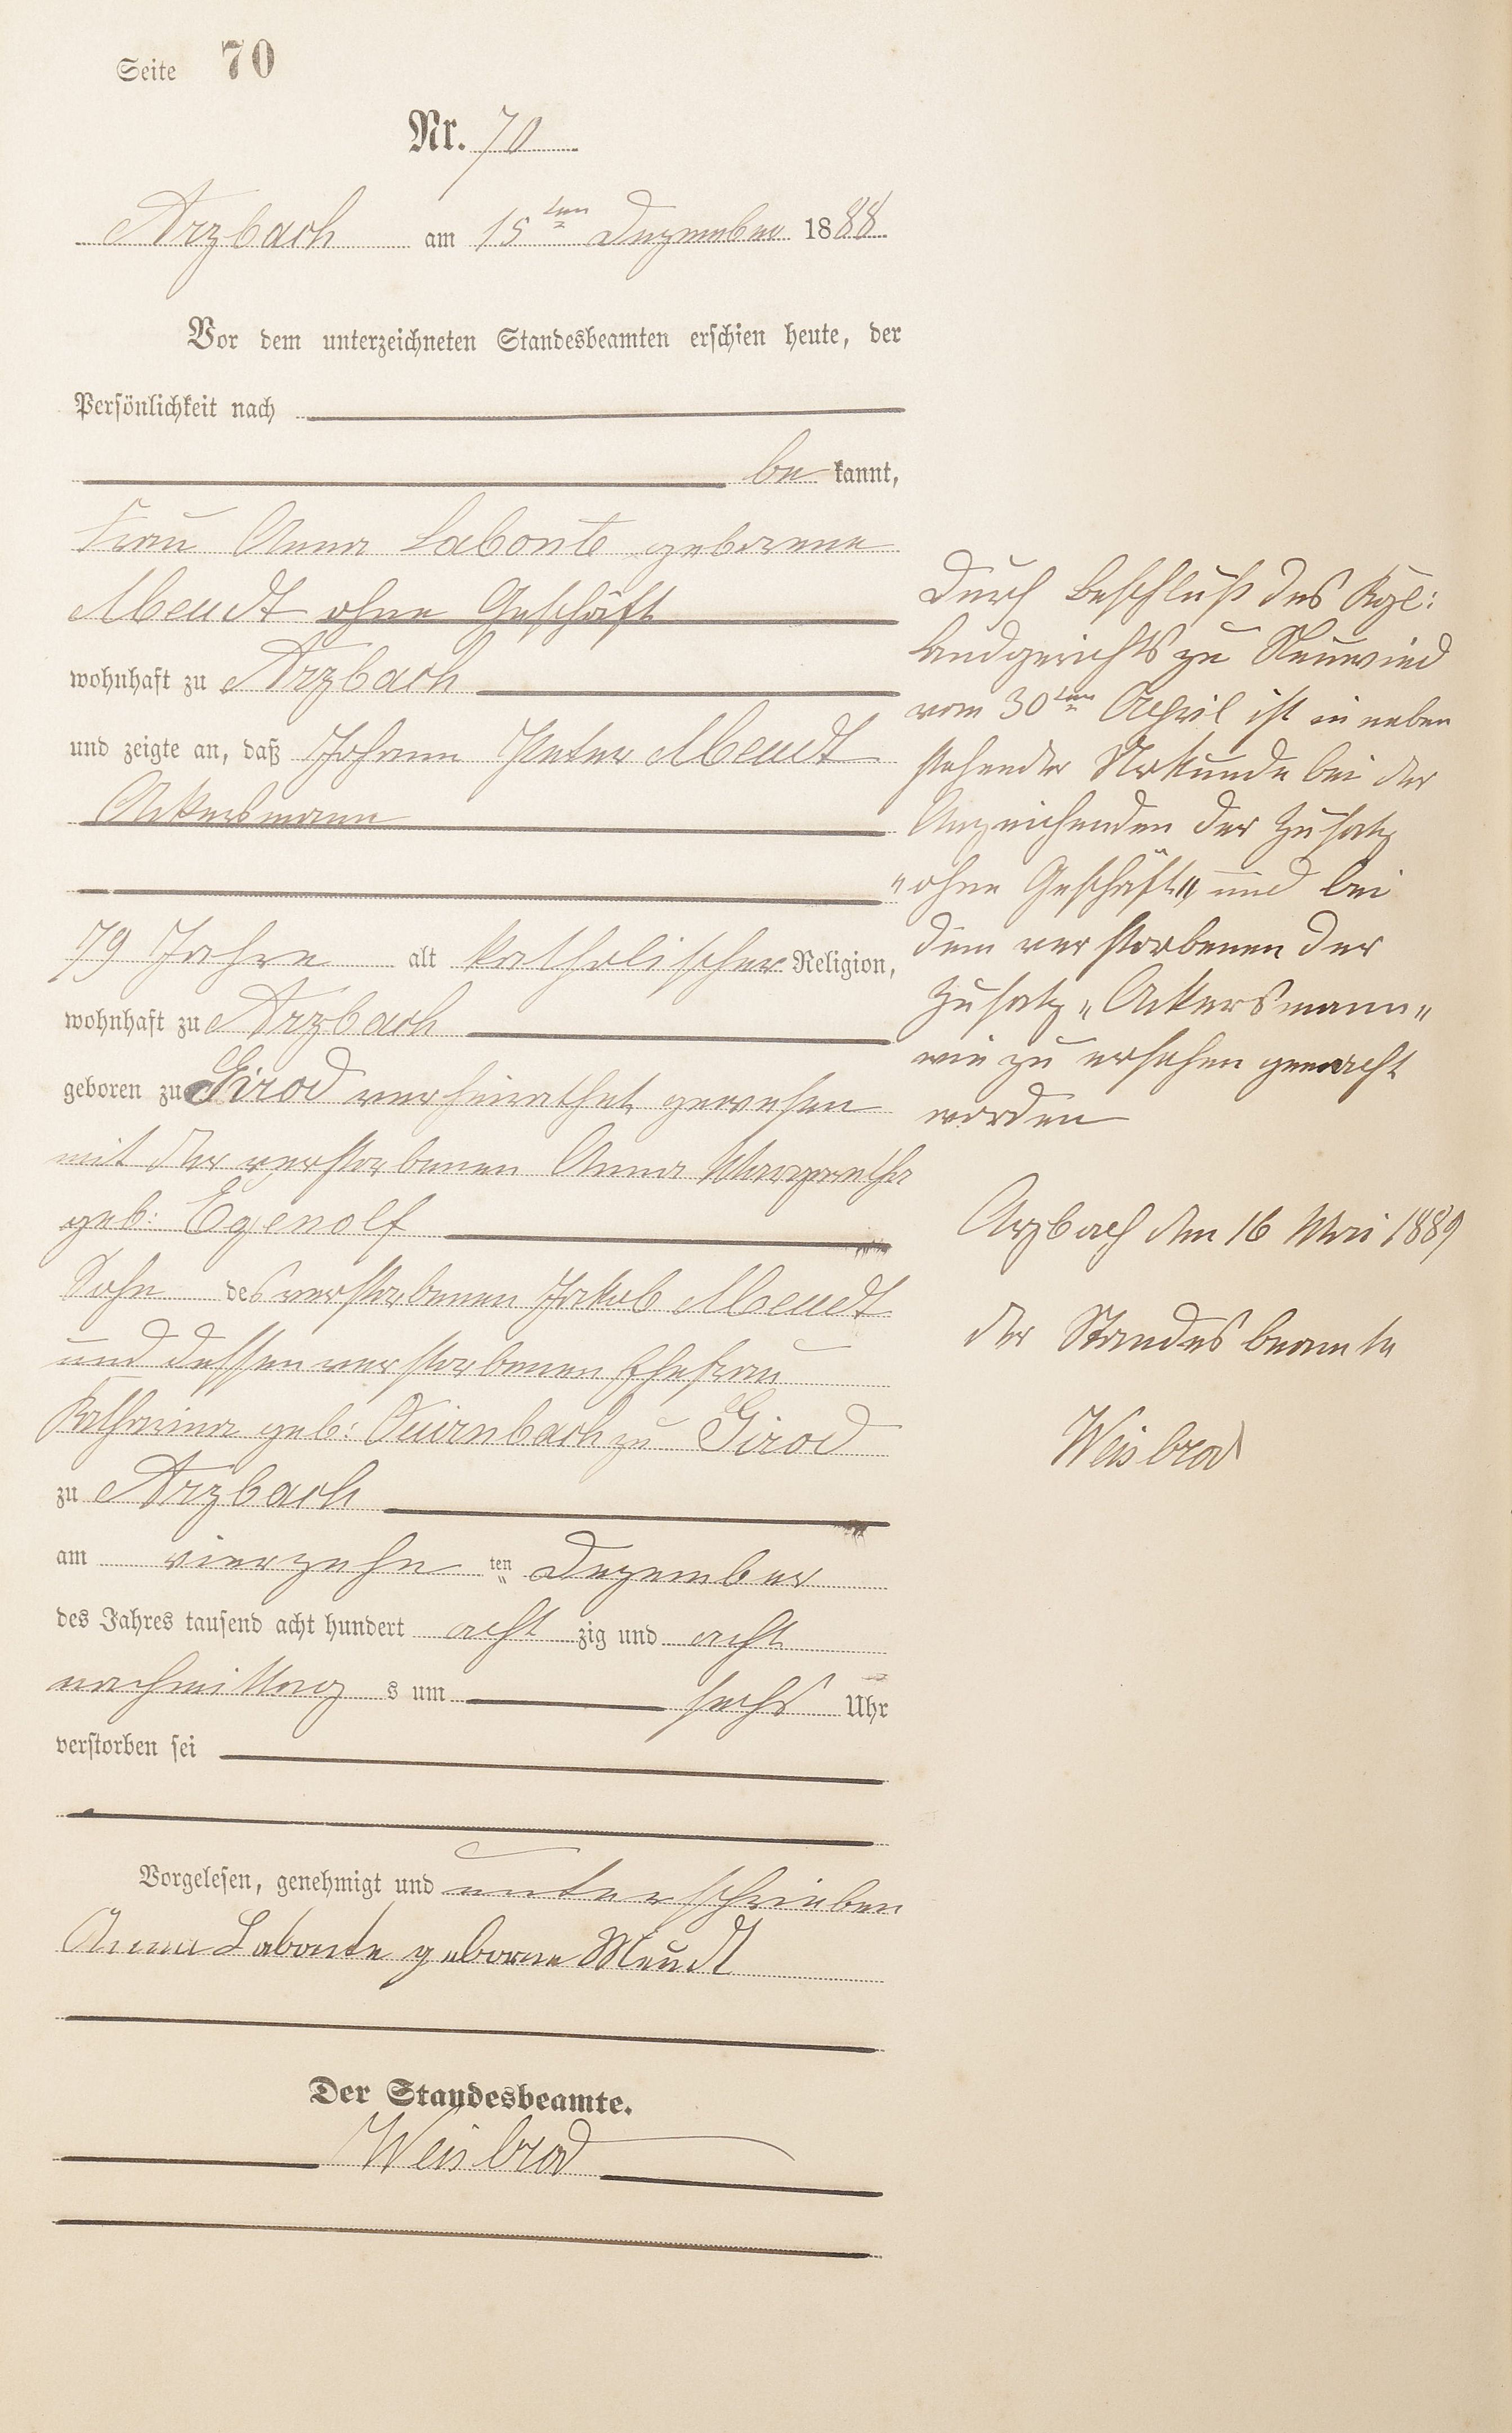 Seite 70
Nr. 70
Arzbach am 15ten Dezember 1888
Vor dem unterzeichneten Standesbeamten erschien heute, der
Persönlichkeit nach
be kannt,
Frau Anna Labonte geborene
Meudt ohne Geschäft
wohnhaft zu Arzbach
und zeigte an, daß Johann Peter Meudt
Ackersmann
79 Jahre alt katholischer Religion,
wohnhaft zu Arzbach
geboren zu Girod verheirathet gewesen
mit der verstorbenen Anna Margaretha
geb: Egenolf
Sohn des verstorbenen Jakob Meudt
und dessen verstorbenen Ehefrau
Katharina geb: Quirnbach zu Girod
zu Arzbach
am vierzehn ten Dezember
des Jahres tausend acht hundert acht zig und acht
nachmittag s um sechs Uhr
verstorben sei
Vorgelesen, genehmigt und unterschrieben
Anna Labonte geborne Meudt
Der Standesbeamte.
Weisbrod
Durch Beschluß des Kgl:
Landgerichts zu Neuwied
vom 30ten April ist in neben
stehender Urkunde bei der
Anzeichenden der Zusatz
"ohne Geschäft" und bei
dem verstorbenen der
Zusatz "Ackersmann"
wie zu ersehen gemacht
worden
Arzbach den 16 Mai 1889
der Standesbeamte
Weisbrod